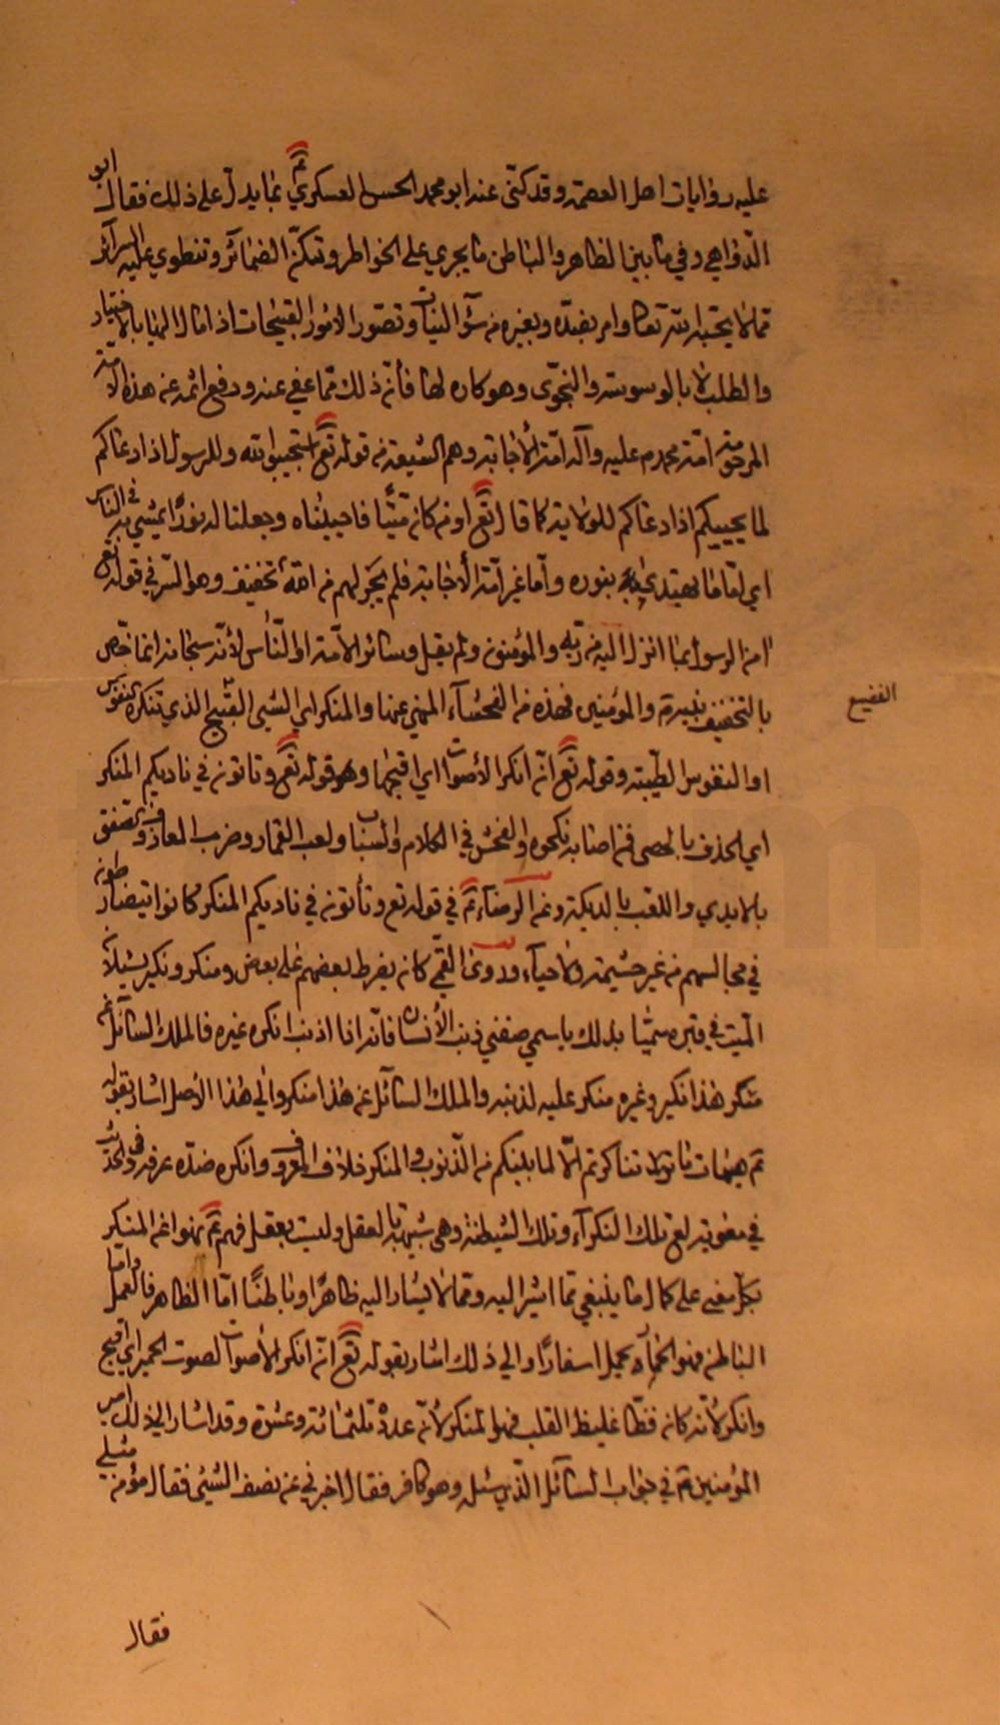 عليه روايات اهل العصمة وقد كنّى عنه ابو محمد الحسن العسكري ع بما يدلّ على ذلك فقال ابو
الدّواهي وفي ما بين الظاهر والباطن ما يجري على الخواطر وتكنّ الضمائر وتنطوي عليه السرآئر
ممّا لا يحبّه اللّه تعا وامر بضدّه وبغيره من سوٓء النيات وتصوّر الامور القبيحات اذا مال اليها بالاختيار
والطلب لا بالوسوسة والنجوى وهو كاره لها فأنّ ذلك ممّا عفي عنه ودفع اثمه عن هذه الامّة
المرحومة امّة محمد ص عليه وآله امّة الأجابة وهم الشيعة من قوله تع استجيبوا للّه وللرسول اذا دعاكم
لما يحييكم اذا دعاكم للولاية كما قال تع اومن كان ميّتًا فاحييناه وجعلنا له نورًا يمشي به في الناس
اي امامًا يهتدي بنوره وامّا غير امّة الأجابة فلم يجر لهم من اللّه تخفيف وهو السّر في قوله تع
امن الرسول بما انزل اليه من ربّه والمؤمنون ولم يقل وسائر الامّة او النّاس لأنّه سبحانه انما خصّ
بالتخفيف نبيّه ص والمؤمنين فهذه من الفحشآء المنهي عنها والمنكر اي الشئ القبيح الذي تنكره النفوس
الفضيع
او النفوس الطيّبة وقوله تع انّ انكر الأصوات اي اقبحها وهو قوله تع وتاتون في ناديكم المنكر
اي الحذف بالحصى فمن اصابه نكحوه والفحش في الكلام والسباب ولعب القمار وضرب المعازف وتصفق
بالايدي واللعب بالديكة وعن الرضا ع في قوله تع وتأتون في ناديكم المنكر كانوا يتضارطون
في مجالسهم من غير حشيمة ولا حيآء وروى القمّي كان يضرط بعضهم على بعض ومنكر ونكير يسئلان
الميّت في قبره سمّيا بذلك باسمي صفتي ذنب الأنسان فانّه اذا اذنب انكره غيره فالملك السّائل عن
منكر هذا نكير وغيره منكر عليه لذنبه والملك السّائل عن هذا منكر والي هذا الأصل اشار بقوله
ع هيهات ما تناكرتم الّا لما بينكم من الذنوب والمنكر خلاف المعروف وانكره ضدّه عرفه وفي الحديث
في معوية لع تلك النكرآء وتلك الشيطنة وهي شبيهة بالعقل وليست بعقل فهم ع نهوا عن المنكر
بكلّ معنى على كمال ما ينبغي ممّا اشير اليه وممّا لا يشار اليه ظاهرًا وباطنًا امّا الظاهر فالعمل وامّا
الباطن فهو الحمار يحمل اسفارًا والي ذلك اشار بقوله تع انّ انكر الأصوات لصوت الحمير اي اقبح
وانكر لأنّه كان فظّا غليظ القلب فهو المنكر لأنّ عدده ثلثمائة وعشرة وقد اشار الي ذلك امير
المؤمنين ع في جواب السّآئل الّذي سئله وهو كافر فقال اخبرني عن نصف الشئ فقال مؤمن مثلي
فقال